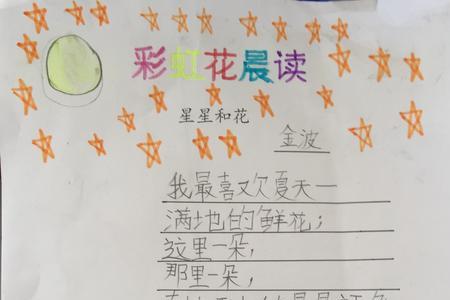 彩虹花晨读
星星和花
金波
我最喜欢夏天—
满地的鲜花；
这里一朵，
那里一朵，